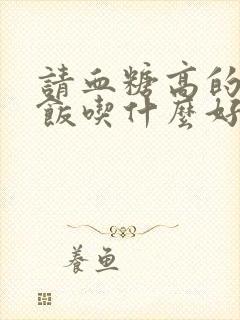 請血糖高的
飯喫什麼好
養魚